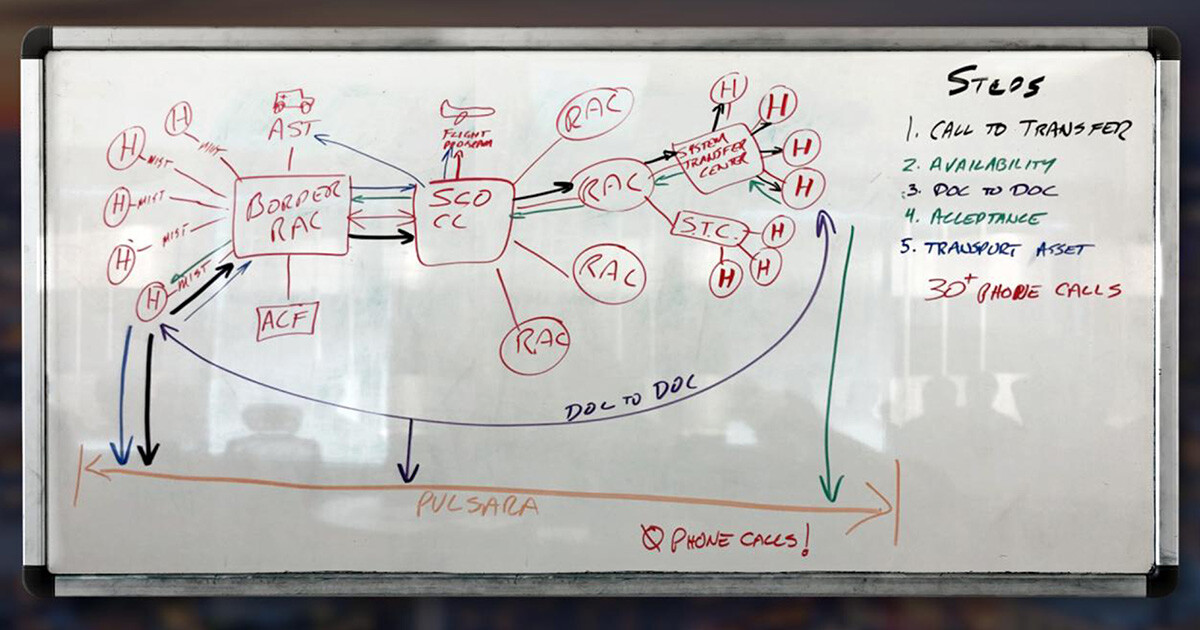 STEPS
1. CALL TO TRANSFER
2. AVAILABILITY
3. DOC TO DOC
4. ACCEPTANCE
5. TRANSPORT ASSET
30+ PHONE CALLS
AST
FLIGHT
PROGRAM
RAC
H
H
H
H
H
H
H
H
H
MIST
MIST
MIST
MIST
MIST
BORDER
RAC
SGO
CC
RAC
SYSTEM
TRANSFER
CENTER
S.T.C.
H
H
H
ACF
RAC
RAC
DOC TO DOC
PULSARA
0 PHONE CALLS!